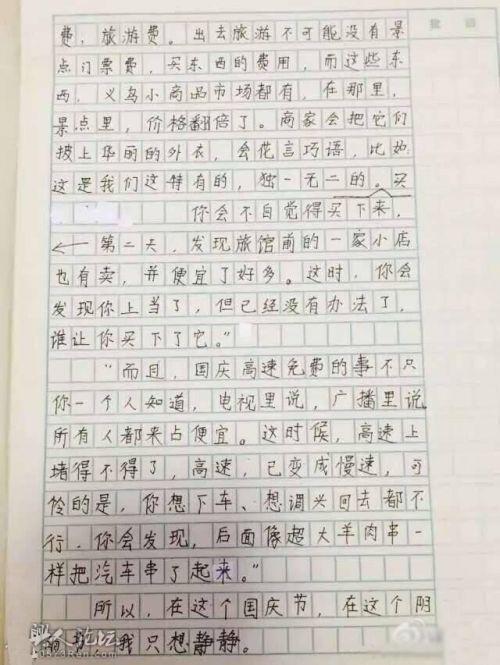 费，旅游费。出去旅游不可能没有景
点门票费，买东西的费用，而这些东
西，义乌小商品市场都有，在那里，
景点里，价格翻倍了。商家会把它们
披上华丽的外衣，会花言巧语，比如
这是我们这特有的，独一无二的。买
你会不自觉得买下来，
← 第二天，发现旅馆前的一家小店
也有卖，并便宜了好多。这时，你会
发现你上当了，但已经没有办法了，
谁让你买下了它。”
“而且，国庆高速免费的事不只
你一个人知道，电视里说，广播里说
所有人都来占便宜。这时候，高速上
堵得不得了，高速，已变成慢速，可
怜的是，你想下车、想调兴回去都不
行，你会发现，后面像超大羊肉串一
样把汽车串了起来。”
所以，在这个国庆节，在这个阴
我只想静静。
论坛